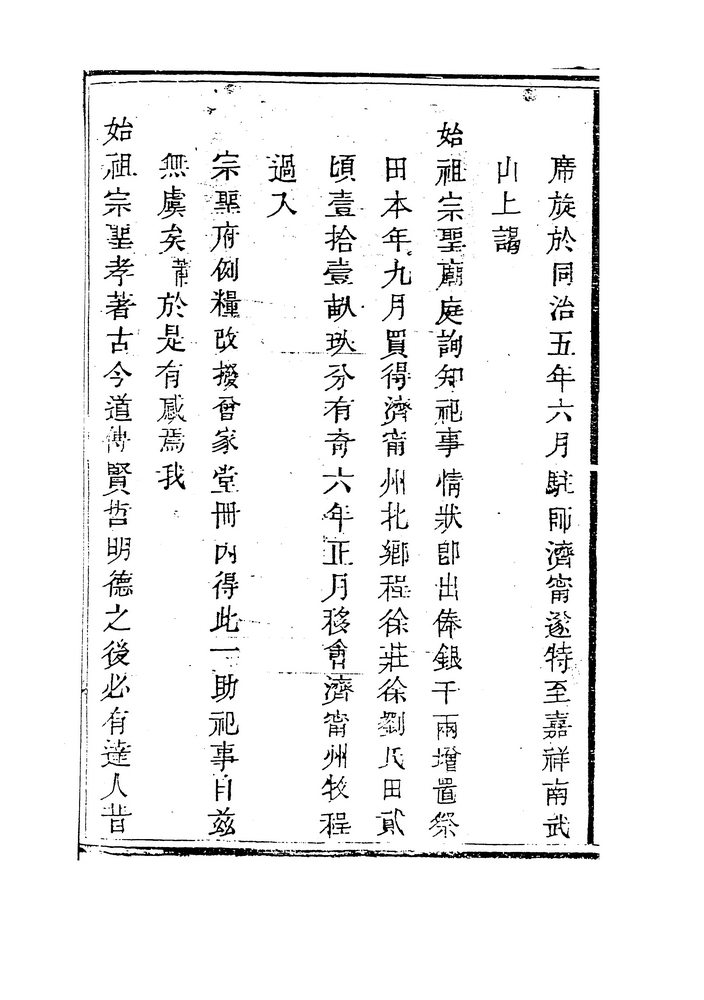 席旋於同治五年六月駐師濟甯遂特至嘉祥南武
山上謁
始祖宗聖廟庭詢知祀事情狀即出俸銀千兩增置祭
田本年九月買得濟甯州北鄉程徐莊徐劉氏田貳
頃壹拾壹畝玖分有奇六年正月移會濟甯州牧程
過入
宗聖府例糧改撥曾家堂冊內得此一助祀事自茲
無虞矣 於是有感焉我
始祖宗聖孝著古今道傳賢哲明德之後必有達人昔